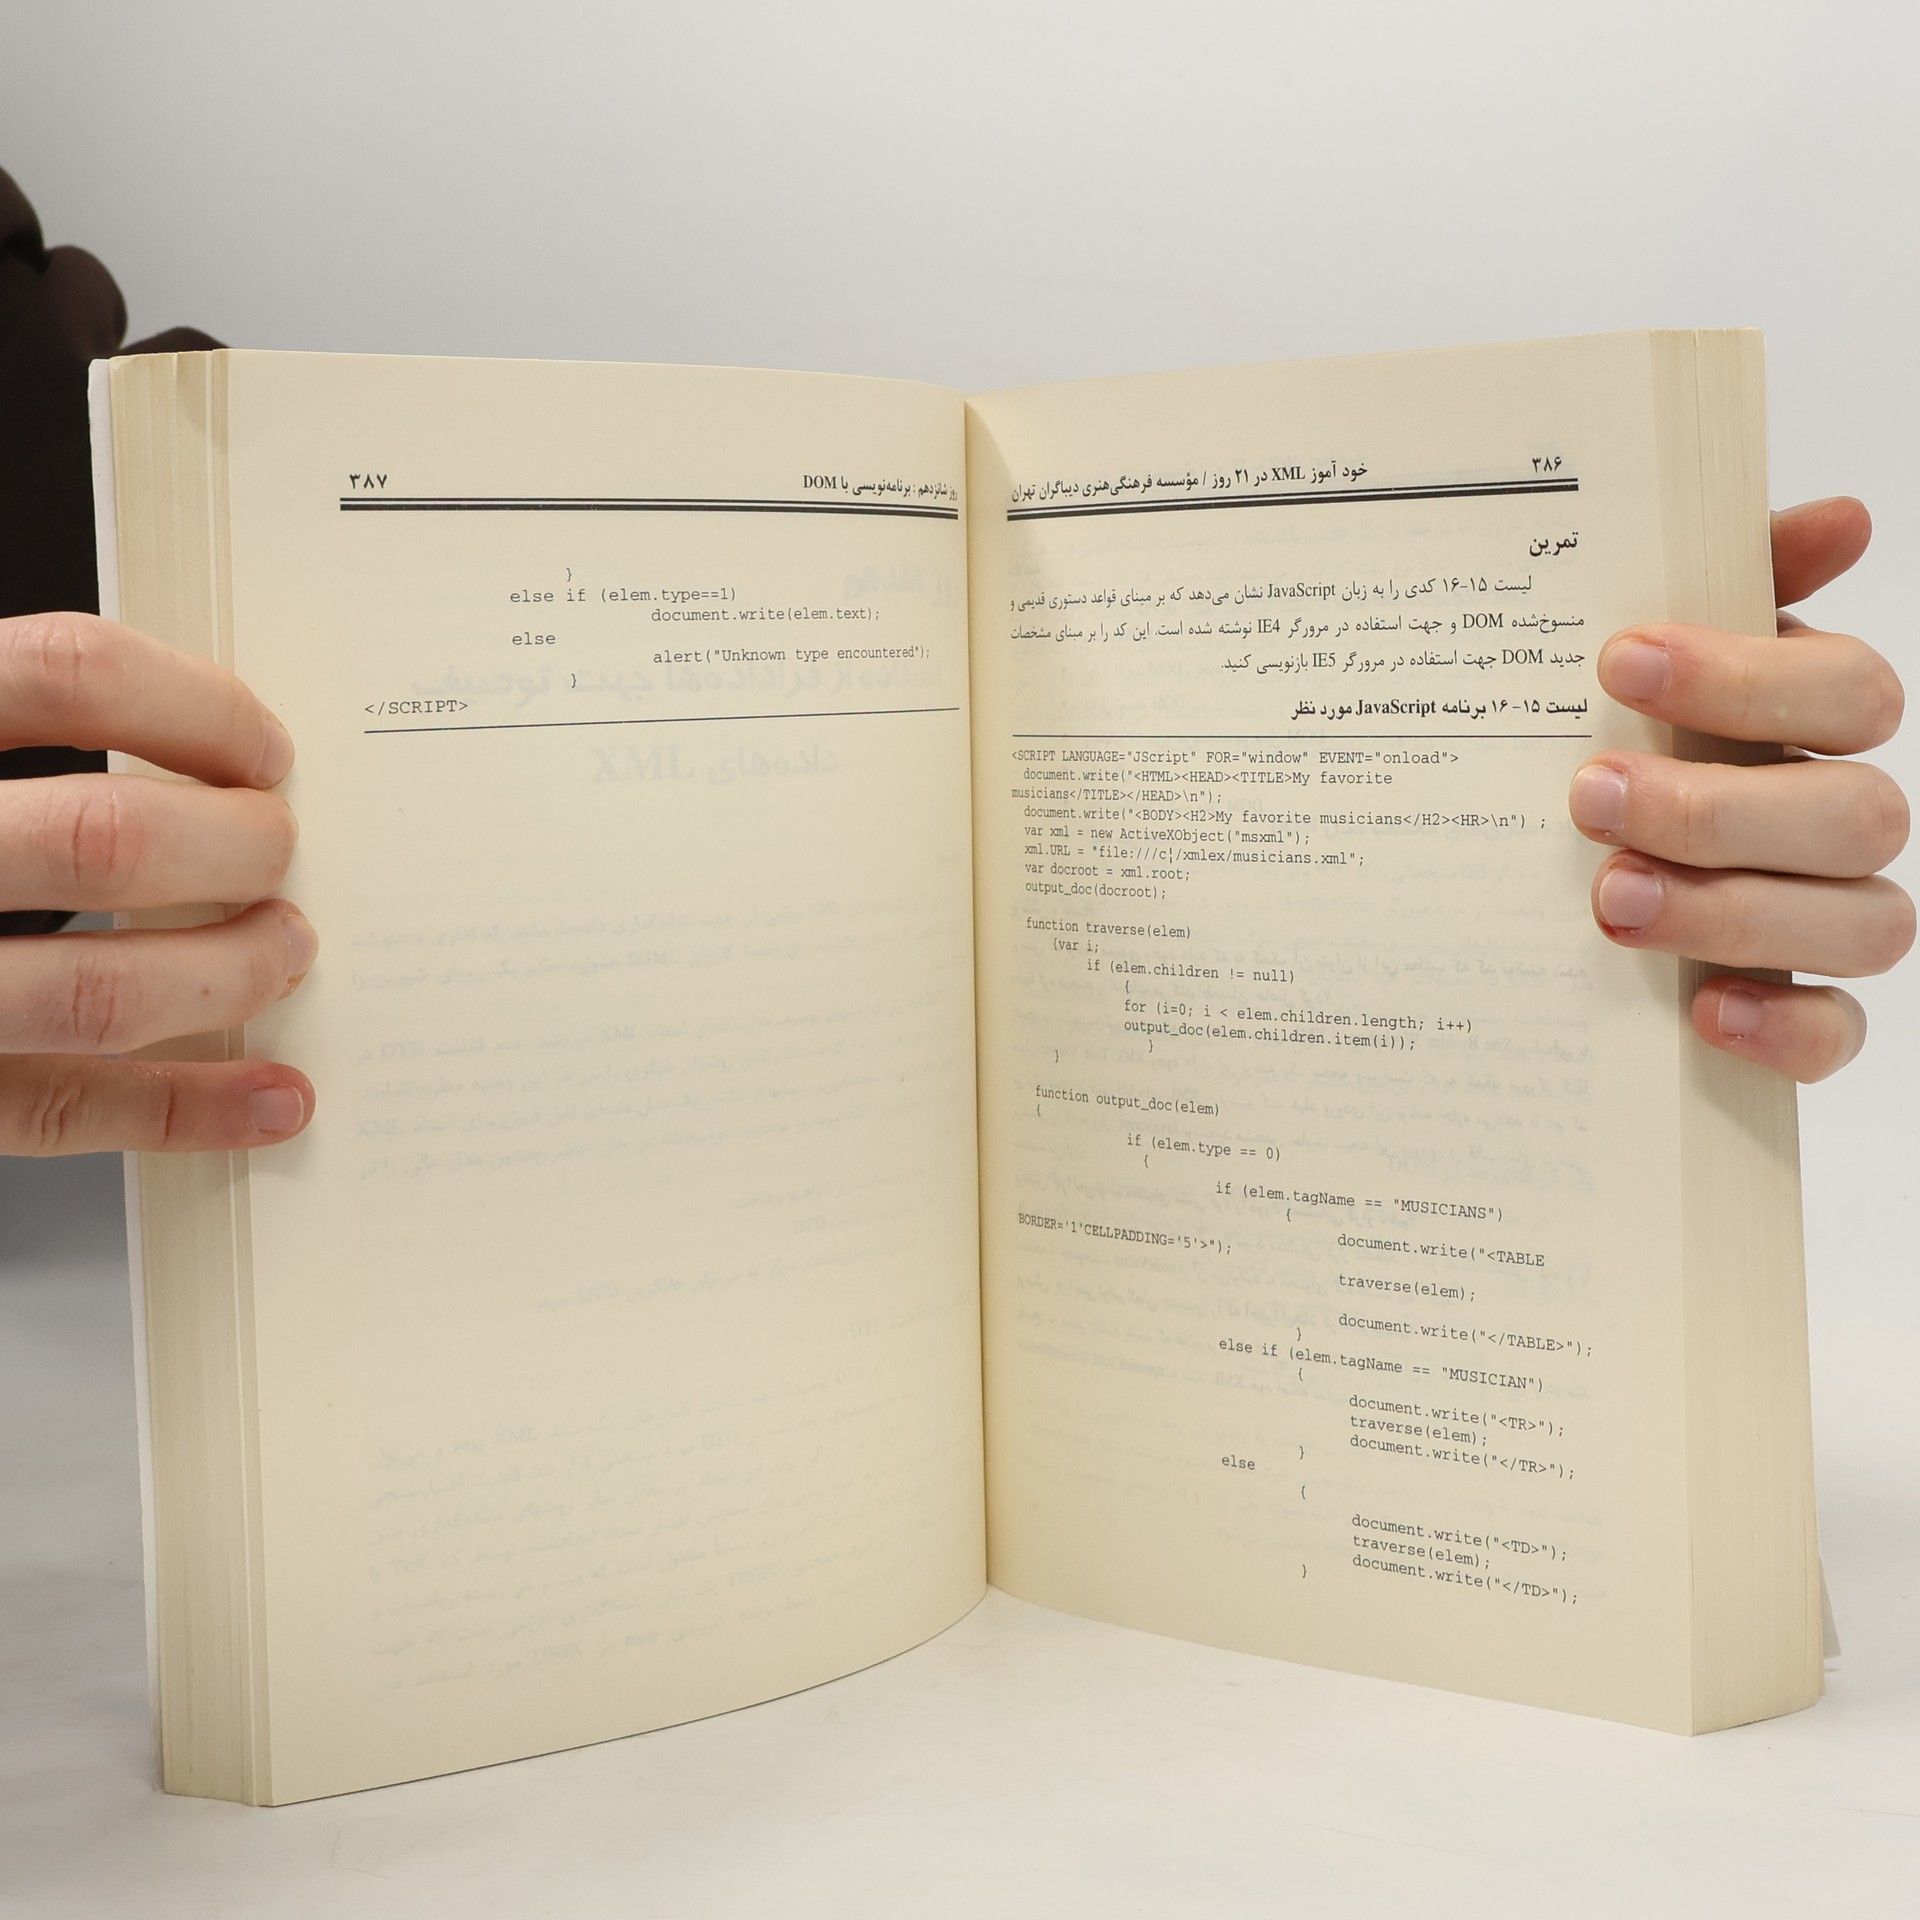 ۳۸۶
خود آموز XML در ۲۱ روز / مؤسسه فرهنگی‌هنری دیباگران تهران
تمرین
لیست ۱۵-۱۶ کدی را به زبان JavaScript نشان می‌دهد که بر مبنای قواعد دستوری قدیمی و
منسوخ‌شده DOM و جهت استفاده در مرورگر IE4 نوشته شده است. این کد را بر مبنای مشخصات
جدید DOM جهت استفاده در مرورگر IE5 بازنویسی کنید.
لیست ۱۵-۱۶ برنامه JavaScript مورد نظر
<SCRIPT LANGUAGE="JScript" FOR="window" EVENT="onload">
document.write("<HTML><HEAD><TITLE>My favorite
musicians</TITLE></HEAD>\n");
document.write("<BODY><H2>My favorite musicians</H2><HR>\n") ;
var xml = new ActiveXObject("msxml");
xml.URL = "file:///c¦/xmlex/musicians.xml";
var docroot = xml.root;
output_doc(docroot);
function traverse(elem)
{var i;
if (elem.children != null)
{
for (i=0; i < elem.children.length; i++)
output_doc(elem.children.item(i));
}
}
function output_doc(elem)
{
if (elem.type == 0)
{
if (elem.tagName == "MUSICIANS")
{
document.write("<TABLE
BORDER='1'CELLPADDING='5'>");
traverse(elem);
document.write("</TABLE>");
}
else if (elem.tagName == "MUSICIAN")
{
document.write("<TR>");
traverse(elem);
document.write("</TR>");
}
else
{
document.write("<TD>");
traverse(elem);
document.write("</TD>");
}
روز شانزدهم : برنامه‌نویسی با DOM
۳۸۷
}
else if (elem.type==1)
document.write(elem.text);
else
alert("Unknown type encountered");
}
</SCRIPT>